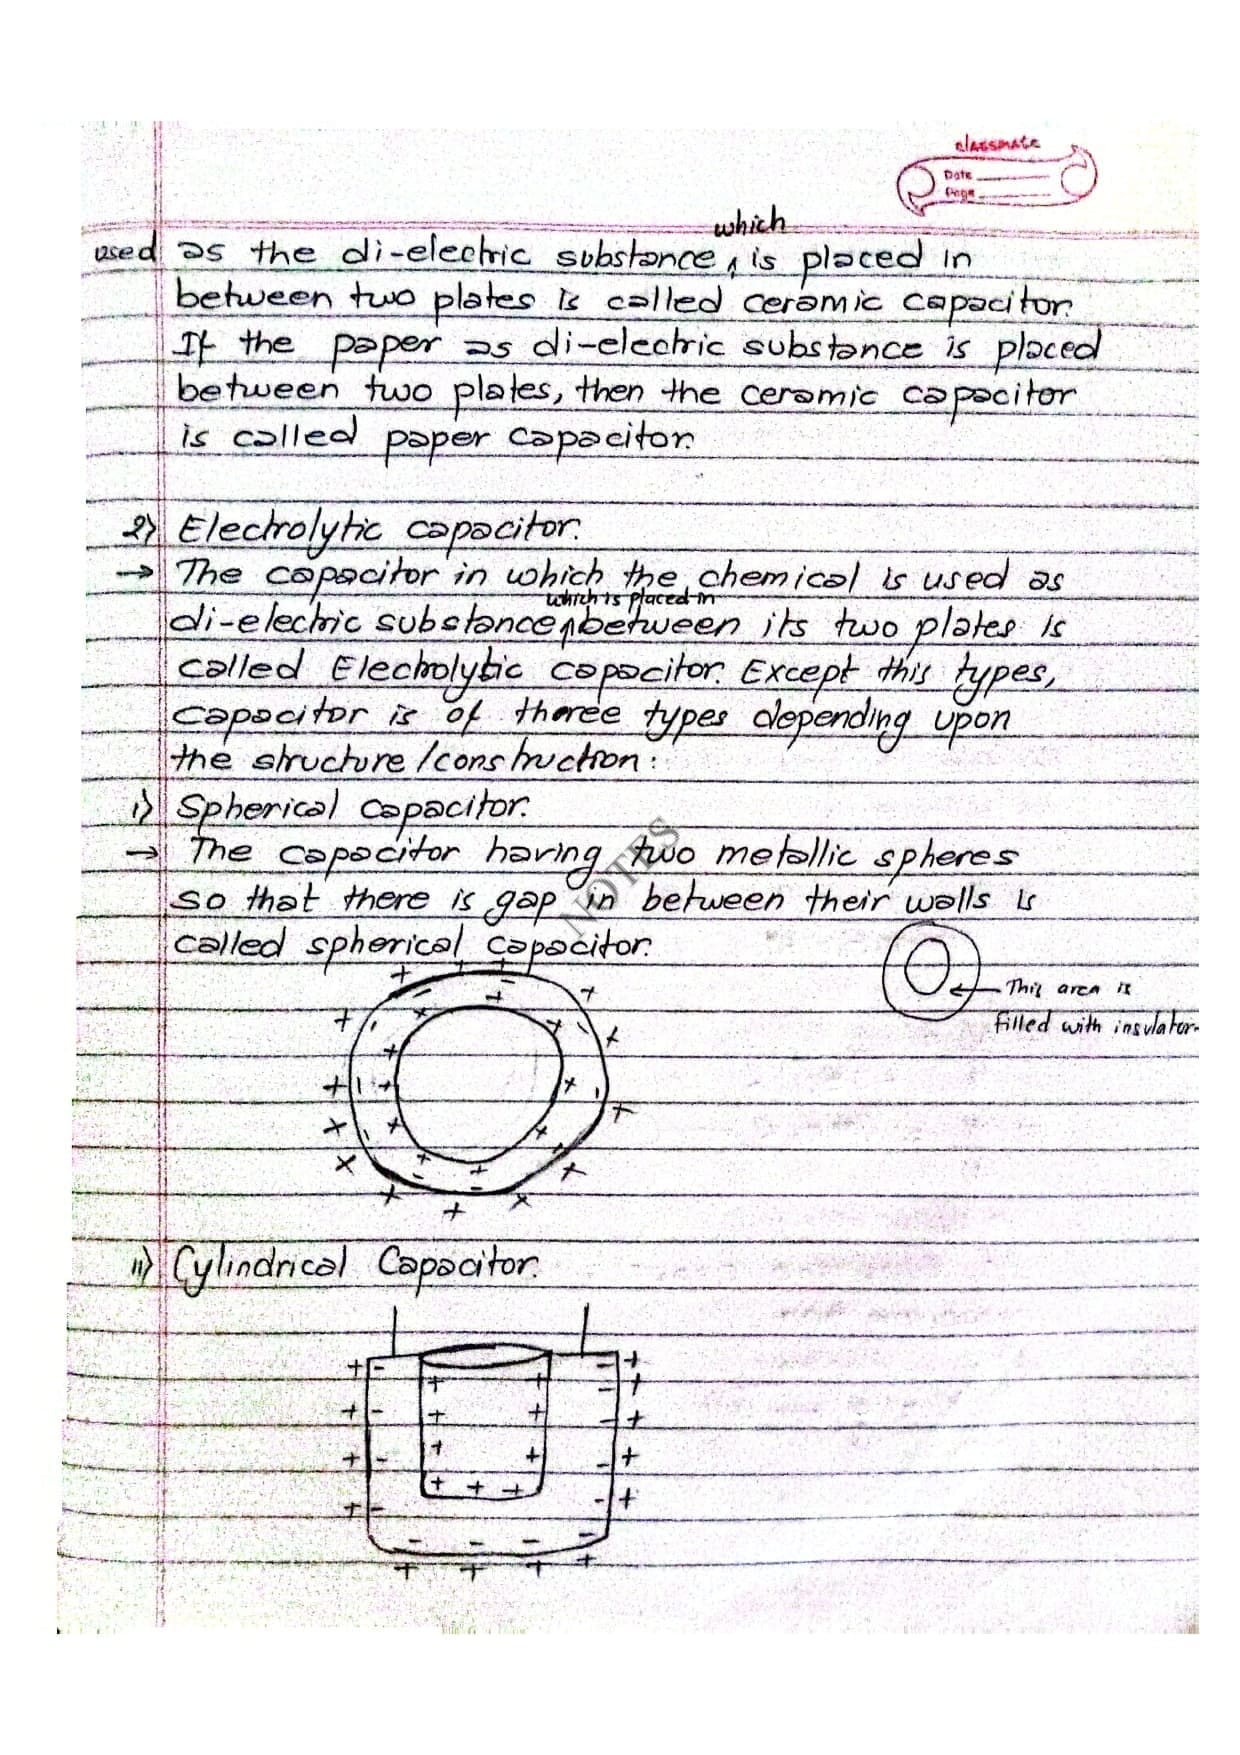 classmate
Date
Page
which
used as the di-electric substance, is placed in
between two plates is called ceramic capacitor.
If the paper as di-electric substance is placed
between two plates, then the ceramic capacitor
is called paper capacitor.
2) Electrolytic capacitor.
→ The capacitor in which the chemical is used as
which is placed in
di-electric substance between its two plates is
called Electrolytic capacitor. Except this types,
capacitor is of tharee types depending upon
the structure/construction:
i) Spherical capacitor.
→ The capacitor having two metallic spheres
so that there is gap in between their walls is
called spherical capacitor.
NOTES
← This area is
filled with insulator.
ii) Cylindrical Capacitor.